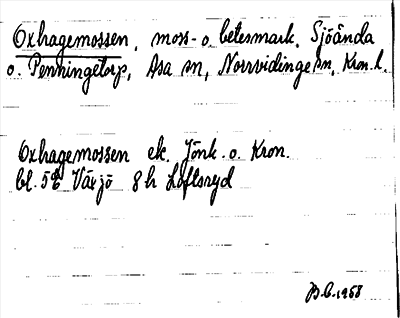 Oxhagemossen, moss- o. betesmark, Sjöända
o. Penningetorp, Asa sn, Norrvidinge hd, Kron. l.
Oxhagemossen ek. Jönk. o. Kron.
bl. 56 Växjö 8 h Loftsryd
B.C. 1958